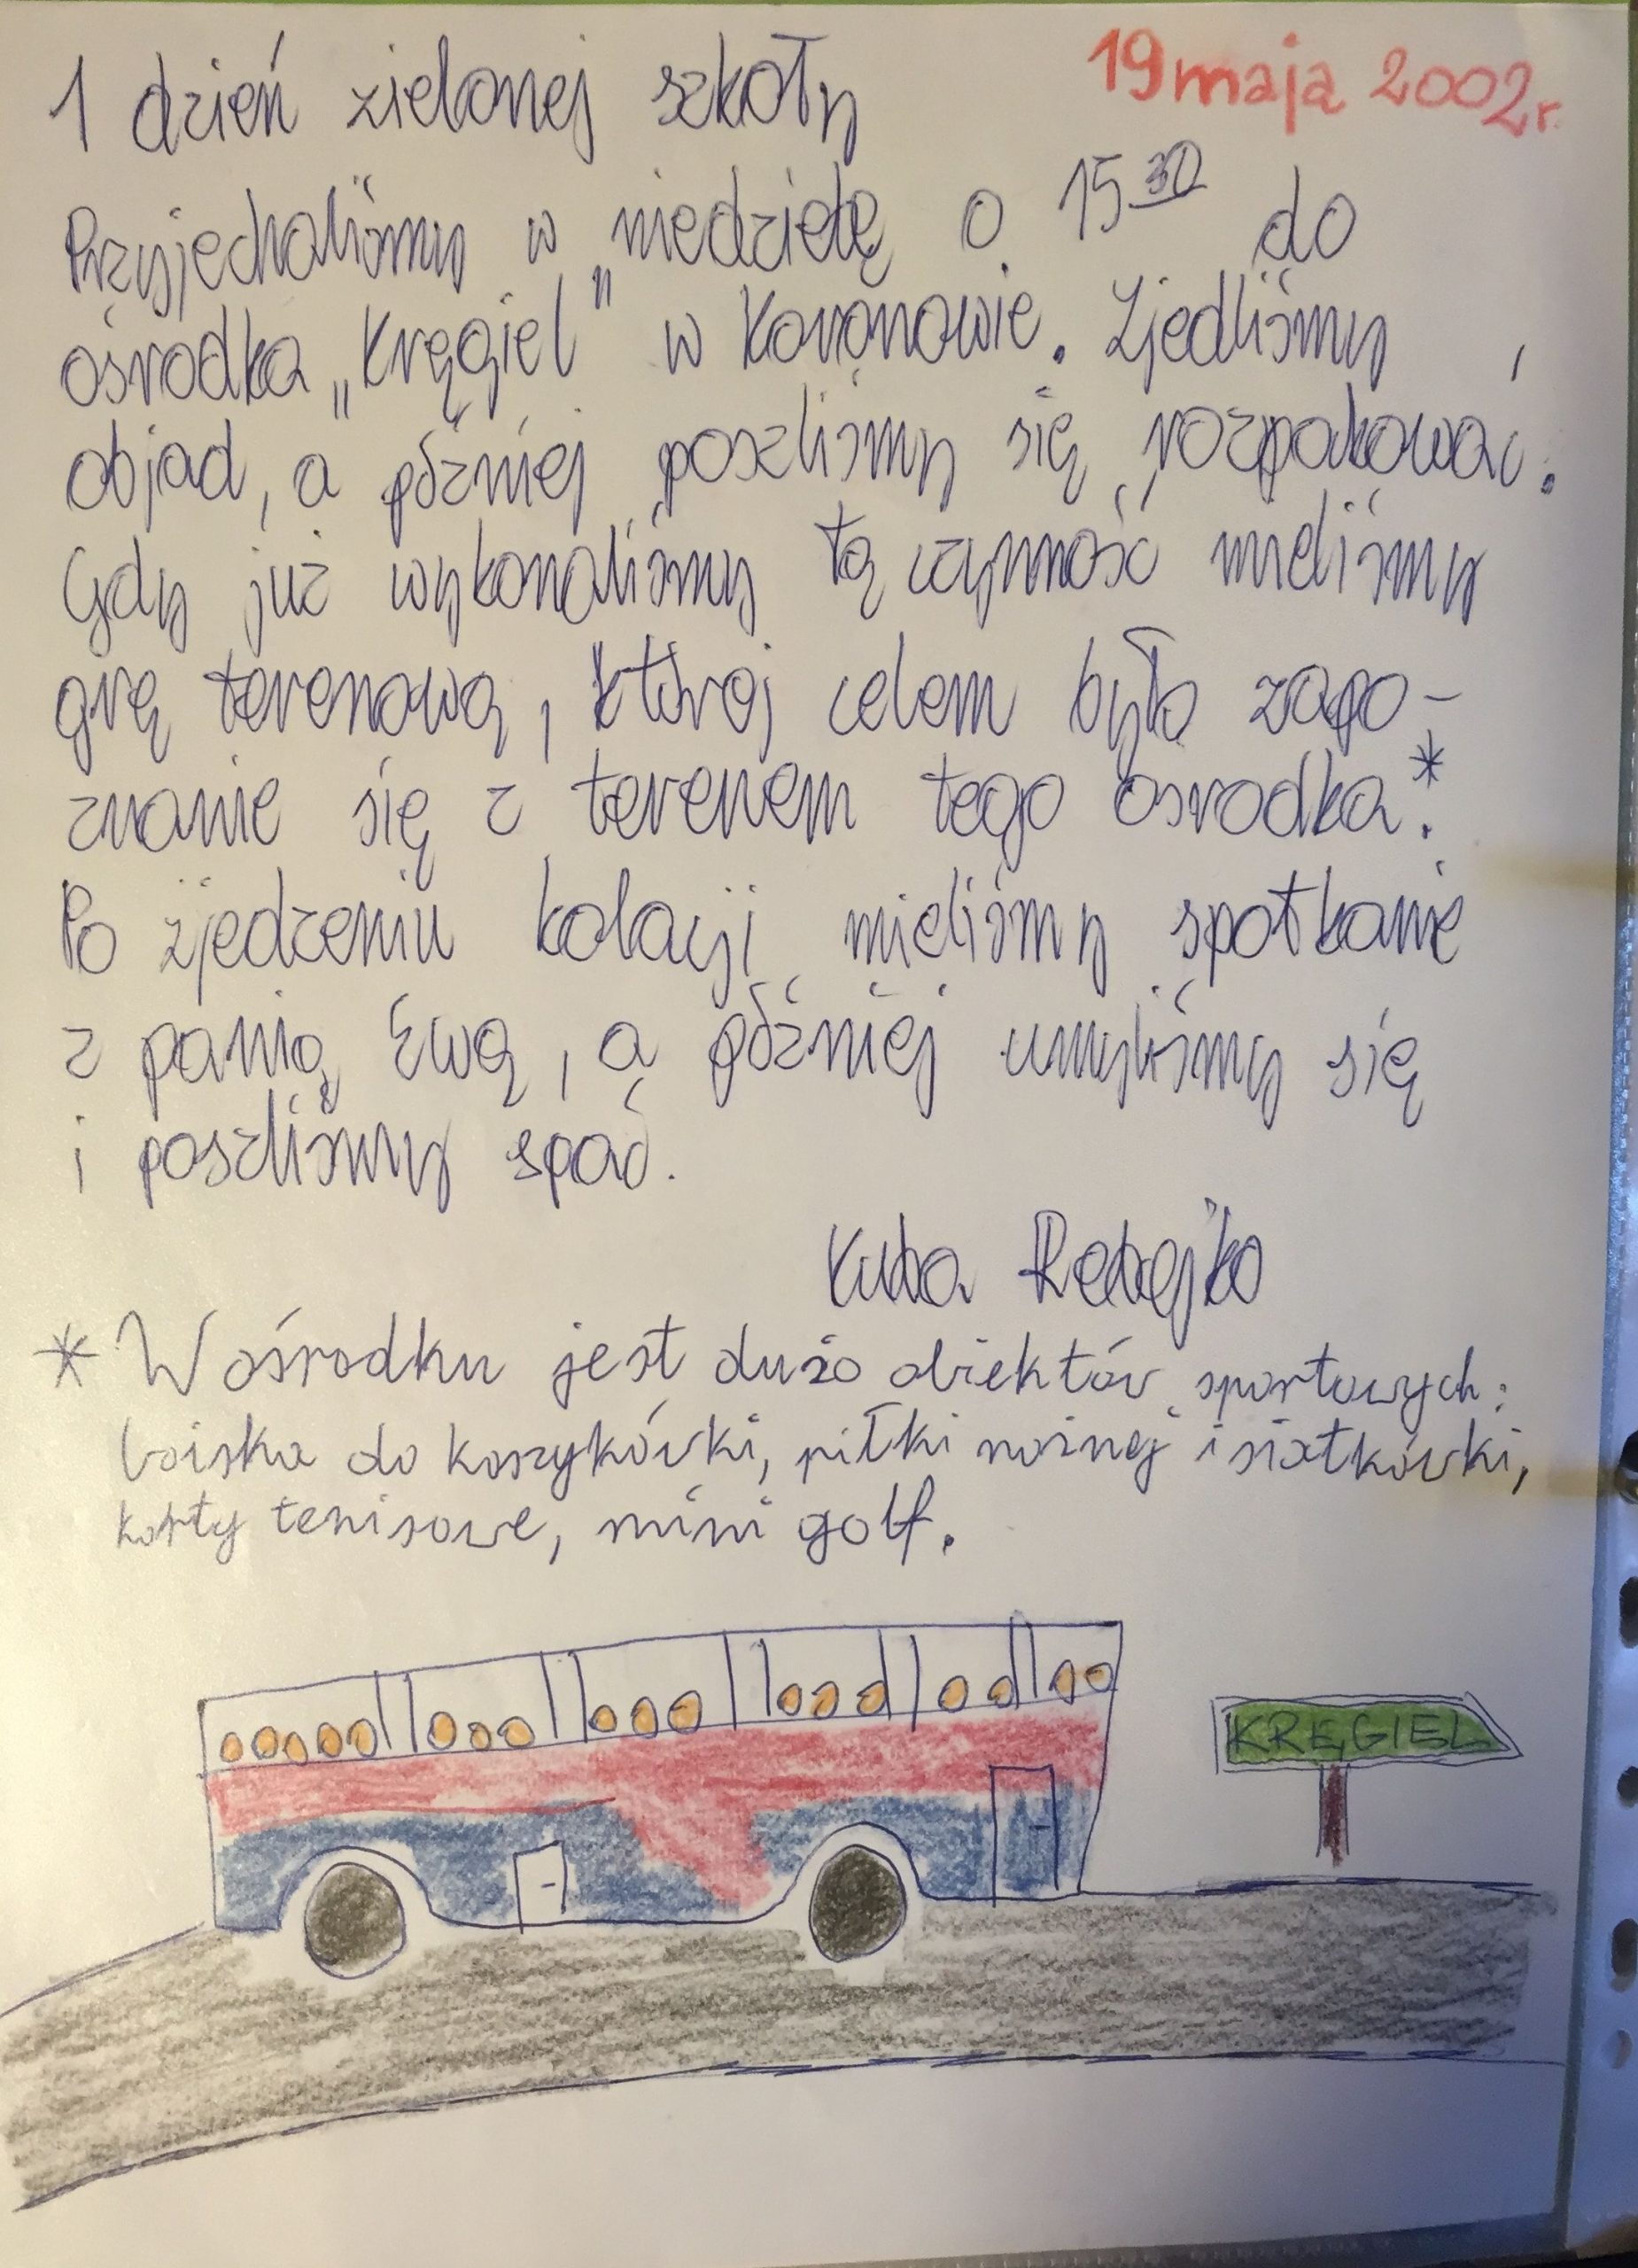 1 dzień zielonej szkoły 19 maja 2002r.
Przyjechaliśmy w niedzielę o 15³⁰ do
ośrodka „Kręgiel" w Koronowie. Zjedliśmy
objad, a później poszliśmy się rozpakować.
Gdy już wykonaliśmy tą czynność mieliśmy
grę terenową, której celem było zapo-
znanie się z terenem tego ośrodka.*
Po zjedzeniu kolacji mieliśmy spotkanie
z panią Ewą, a później umyliśmy się
i poszliśmy spać.
Kuba
* W ośrodku jest dużo obiektów sportowych:
boiska do koszykówki, piłki nożnej i siatkówki,
korty tenisowe, mini golf.
KRĘGIEL